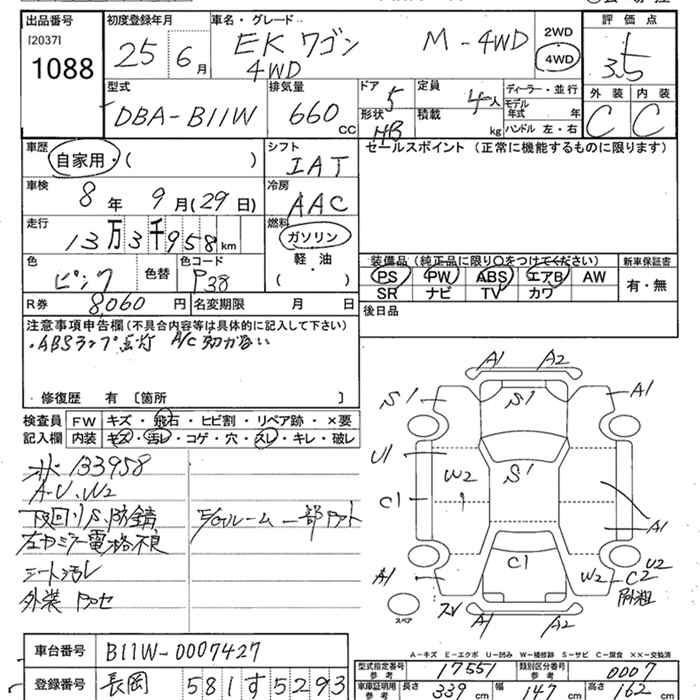 出品番号
[2037]
1088
初度登録年月
25年 6月
車名・グレード
EK ワゴン M-4WD
4WD
2WD
4WD
評価点
3.5
外装 内装
C C
型式
DBA-B11W
排気量
660 CC
ドア
5
形状
HB
定員
4人
積載
kg
ディーラー・並行
モデル年式 年
ハンドル 左・右
車歴
自家用・( )
シフト
IAT
セールスポイント (正常に機能するものに限ります)
車検
8年 9月(29日)
冷房
AAC
走行
13万3千958km
燃料
ガソリン
軽油
( ・ )
色
ピンク
色替
色コード
P38
装備品(純正品に限り○をつけてください)
新車保証書
PS PW ABS エアB AW
有・無
SR ナビ TV カワ
R券 8,060円
名変期限 月 日
後日品
注意事項申告欄(不具合内容等は具体的に記入して下さい)
・ABSランプ点灯 A/C効かない
・修復歴 有 〔箇所 〕
検査員記入欄
FW キズ・飛石・ヒビ割・リペア跡・×要
内装 キズ・汚レ・コゲ・穴・スレ・キレ・破レ
133958
A-U、W2
下回りS、防錆
左ドアミラー電格不良
シートスレ
外装
E/Gルーム 一部
A1 A2
S1 S1 A1
U1 W2 S1
C1 A1
A1 C1 W2 C2 U2
スペア
A1 A2
A-キズ E-エクボ U-凹み W-補修跡 S-サビ C-腐食 ××-交換済
車台番号
B11W-0007427
登録番号
長岡 581 す 5293
型式指定番号 参考
17551
類別区分番号 参考
0007
車庫証明用 参考
長さ 339cm 幅 147cm 高さ 162cm